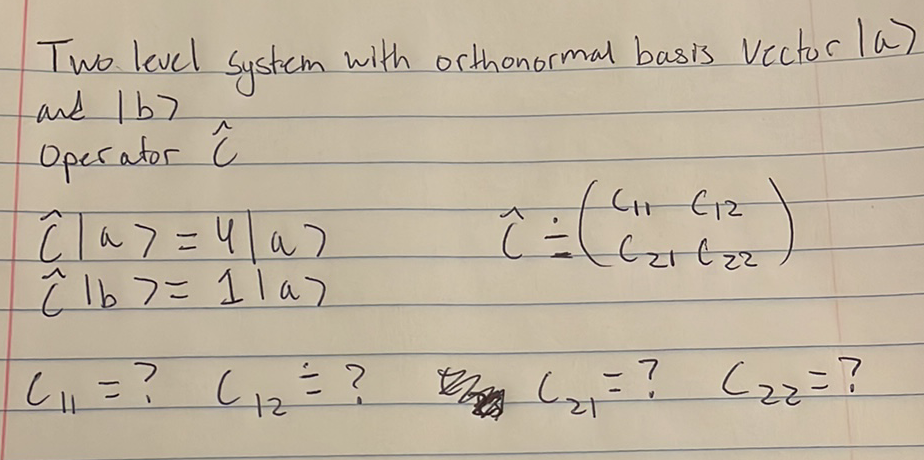 Two level system with orthonormal basis vector |a>
and |b>
Operator Ĉ
Ĉ|a> = 4|a>
Ĉ|b> = 1|a>
Ĉ ≐ ( C₁₁ C₁₂
C₂₁ C₂₂ )
C₁₁ = ? C₁₂ ≐ ? C₂₁ = ? C₂₂ = ?